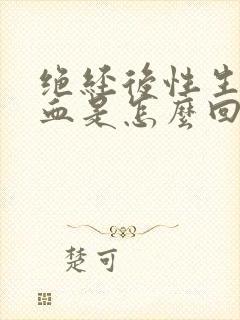 绝经後性生
血是怎麼回
楚可